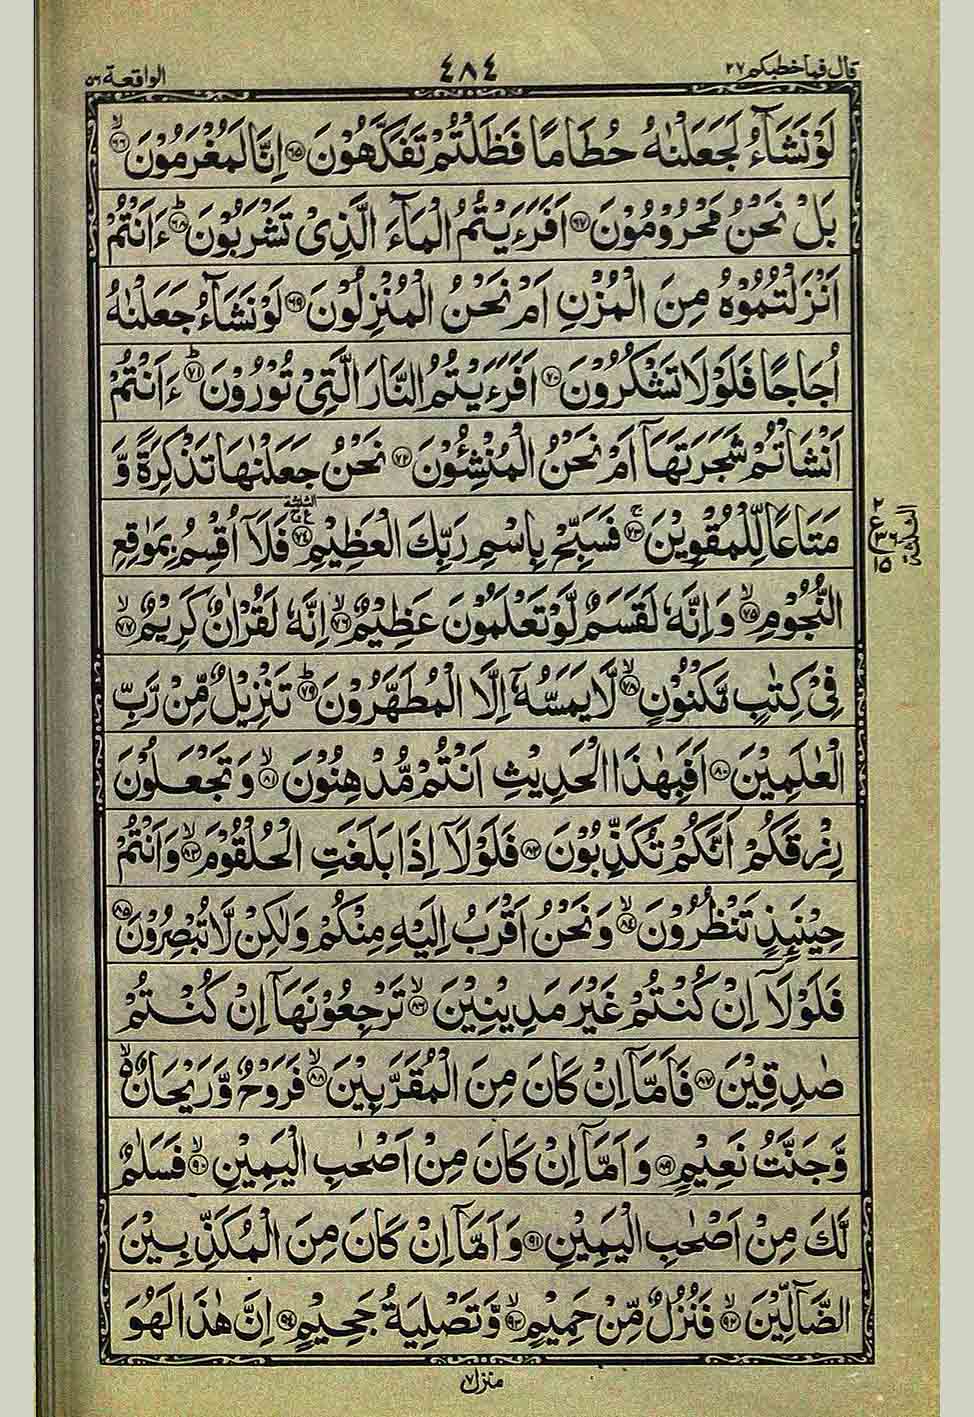 قال فما خطبكم ٢٧ ٤٨٤ الواقعة ٥٦
لَوْ نَشَآءُ لَجَعَلْنٰهُ حُطَامًا فَظَلْتُمْ تَفَكَّهُوْنَ ﴿٦٥﴾ اِنَّا لَمُغْرَمُوْنَ ﴿٦٦﴾
بَلْ نَحْنُ مَحْرُوْمُوْنَ ﴿٦٧﴾ اَفَرَءَيْتُمُ الْمَآءَ الَّذِىْ تَشْرَبُوْنَ ﴿٦٨﴾ ءَاَنْتُمْ
اَنْزَلْتُمُوْهُ مِنَ الْمُزْنِ اَمْ نَحْنُ الْمُنْزِلُوْنَ ﴿٦٩﴾ لَوْ نَشَآءُ جَعَلْنٰهُ
اُجَاجًا فَلَوْلَا تَشْكُرُوْنَ ﴿٧٠﴾ اَفَرَءَيْتُمُ النَّارَ الَّتِىْ تُوْرُوْنَ ﴿٧١﴾ ءَاَنْتُمْ
اَنْشَاْتُمْ شَجَرَتَهَآ اَمْ نَحْنُ الْمُنْشِئُوْنَ ﴿٧٢﴾ نَحْنُ جَعَلْنٰهَا تَذْكِرَةً وَّ
مَتَاعًا لِّلْمُقْوِيْنَ ﴿٧٣﴾ فَسَبِّحْ بِاسْمِ رَبِّكَ الْعَظِيْمِ ﴿٧٤﴾ فَلَآ اُقْسِمُ بِمَوٰقِعِ
النُّجُوْمِ ﴿٧٥﴾ وَاِنَّهٗ لَقَسَمٌ لَّوْ تَعْلَمُوْنَ عَظِيْمٌ ﴿٧٦﴾ اِنَّهٗ لَقُرْاٰنٌ كَرِيْمٌ ﴿٧٧﴾
فِىْ كِتٰبٍ مَّكْنُوْنٍ ﴿٧٨﴾ لَّا يَمَسُّهٗٓ اِلَّا الْمُطَهَّرُوْنَ ﴿٧٩﴾ تَنْزِيْلٌ مِّنْ رَّبِّ
الْعٰلَمِيْنَ ﴿٨٠﴾ اَفَبِهٰذَا الْحَدِيْثِ اَنْتُمْ مُّدْهِنُوْنَ ﴿٨١﴾ وَتَجْعَلُوْنَ
رِزْقَكُمْ اَنَّكُمْ تُكَذِّبُوْنَ ﴿٨٢﴾ فَلَوْلَآ اِذَا بَلَغَتِ الْحُلْقُوْمَ ﴿٨٣﴾ وَاَنْتُمْ
حِيْنَئِذٍ تَنْظُرُوْنَ ﴿٨٤﴾ وَنَحْنُ اَقْرَبُ اِلَيْهِ مِنْكُمْ وَلٰكِنْ لَّا تُبْصِرُوْنَ ﴿٨٥﴾
فَلَوْلَآ اِنْ كُنْتُمْ غَيْرَ مَدِيْنِيْنَ ﴿٨٦﴾ تَرْجِعُوْنَهَآ اِنْ كُنْتُمْ
صٰدِقِيْنَ ﴿٨٧﴾ فَاَمَّآ اِنْ كَانَ مِنَ الْمُقَرَّبِيْنَ ﴿٨٨﴾ فَرَوْحٌ وَّرَيْحَانٌ ۙ
وَّجَنَّتُ نَعِيْمٍ ﴿٨٩﴾ وَاَمَّآ اِنْ كَانَ مِنْ اَصْحٰبِ الْيَمِيْنِ ﴿٩٠﴾ فَسَلٰمٌ
لَّكَ مِنْ اَصْحٰبِ الْيَمِيْنِ ﴿٩١﴾ وَاَمَّآ اِنْ كَانَ مِنَ الْمُكَذِّبِيْنَ
الضَّآلِّيْنَ ﴿٩٢﴾ فَنُزُلٌ مِّنْ حَمِيْمٍ ﴿٩٣﴾ وَّتَصْلِيَةُ جَحِيْمٍ ﴿٩٤﴾ اِنَّ هٰذَا لَهُوَ
منزل ٧